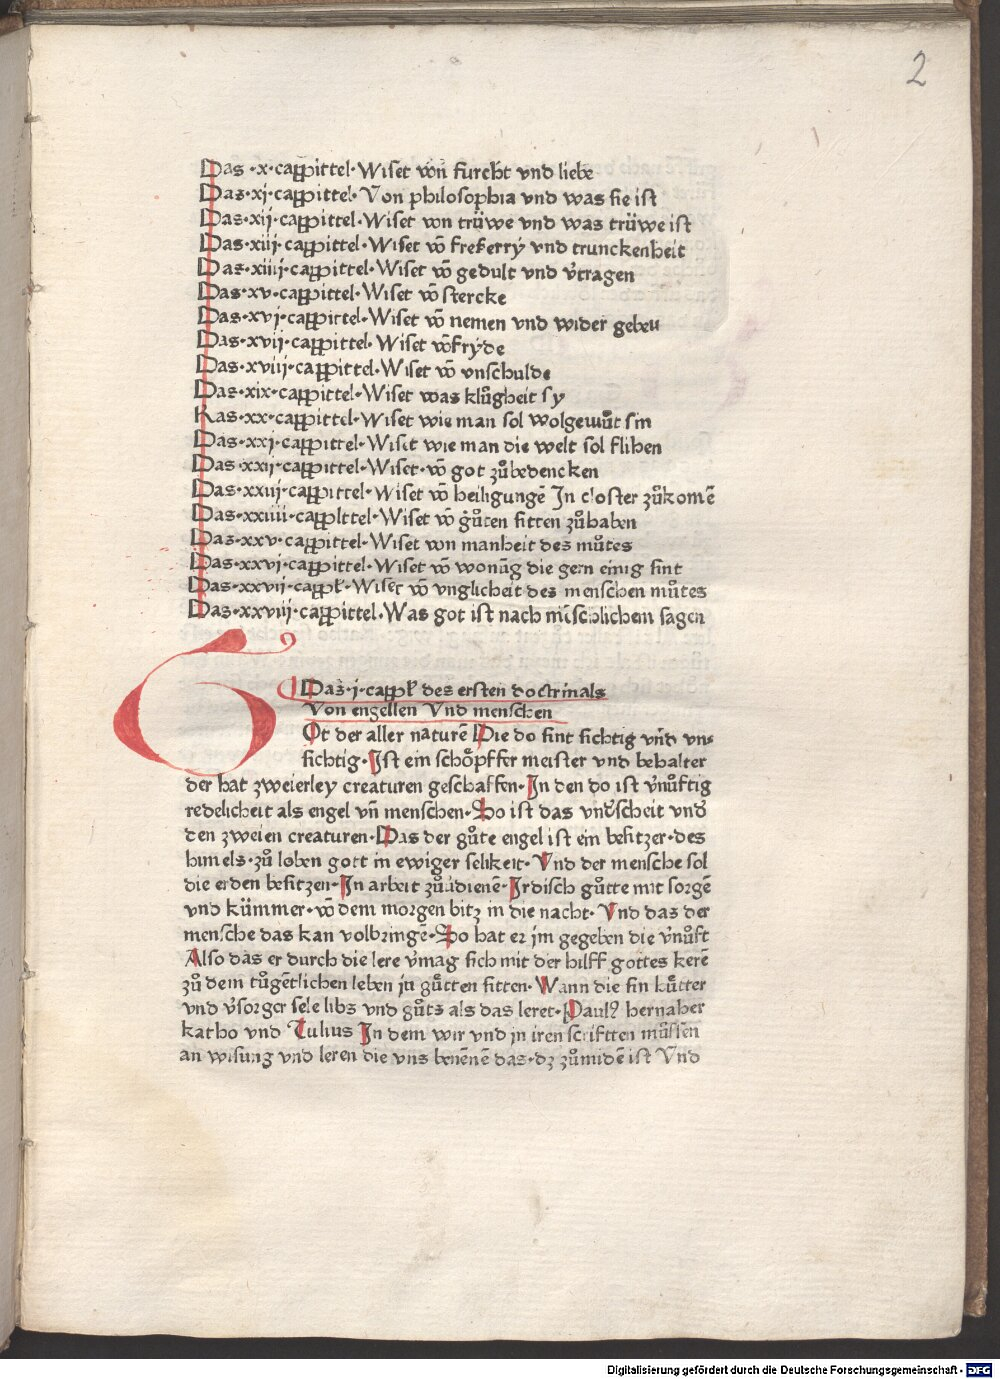 2
Das ·x· cappittel· Wiset võn furcht vnd liebe
Das·xj·cappittel· Von philosophia vnd was sie ist
Das·xij·cappittel·Wiset von trüwe vnd was trüwe ist
Das·xiij·cappittel·Wiset võ freßerry vnd trunckenheit
Das·xiiij·cappittel·Wiset võ gedult vnd v̓tragen
Das·xv·cappittel·Wiset võ stercke
Das·xvj·cappittel·Wiset võ nemen vnd wider geben
Das·xvij·cappittel· Wiset võ fryde
Das·xviij·cappittel·Wiset võ vnschulde
Das·xix·cappittel·Wiset was klůgheit sy
Ras·xx·cappittel·Wiset wie man sol wolgemůt sin
Das·xxj·cappittel·Wiset wie man die welt sol flihen
Das·xxij·cappittel·Wiset·võ got zůbedencken
Das·xxiij·cappittel·Wiset võ heiligungẽ In closter zůkomẽ
Das·xxiiii·cappittel·Wiset võ gůten sitten zůhaben
Das·xxv·cappittel·Wiset von manheit des můtes
Das·xxvj·cappittel·Wiset võ wonũg die gern einig sint
Das·xxvij·cappl̓·Wiset võ vnglicheit des menschen můtes
Das·xxviij·cappittel·Was got ist nach mẽschlichem sagen
Das·j·cappl̓ des ersten doctrinals
Von engellen Vnd menschen
G Ot der aller naturẽ Die do sint sichtig vñd vn⸗
sichtig·Ist ein schöpffer meister vnd behalter
der hat zweierley creaturen geschaffen·In den do ist v̓nůftig
redelicheit als engel vñ menschen·So ist das vnd̓scheit vnd̓
den zweien creaturen·Das der gůte engel ist ein besitzer·des
himels·zů loben gott in ewiger selikeit·Vnd der mensche sol
die erden besitzen·In arbeit zůdienẽ·Irdisch gůtte mit sorgẽ
vnd kümmer·võ dem morgen bitz in die nacht·Vnd das der
mensche das kan volbringẽ·So hat er jm gegeben die v̓nůft
Also das er durch die lere v̓mag sich mit der hilff gottes kerẽ
zů dem tůgẽtlichen leben jn gůtten sitten·Wann die sin kůtter
vnd v̓sorger sele libs vnd gůts als das leret·Paulꝰ hernaher
katho vnd Tulius In dem wir vnd jn iren scrifften můssen
an wisung vnd leren die vns benẽnẽ das·dz zůmidẽ ist Vnd
Digitalisierung gefördert durch die Deutsche Forschungsgemeinschaft - DFG